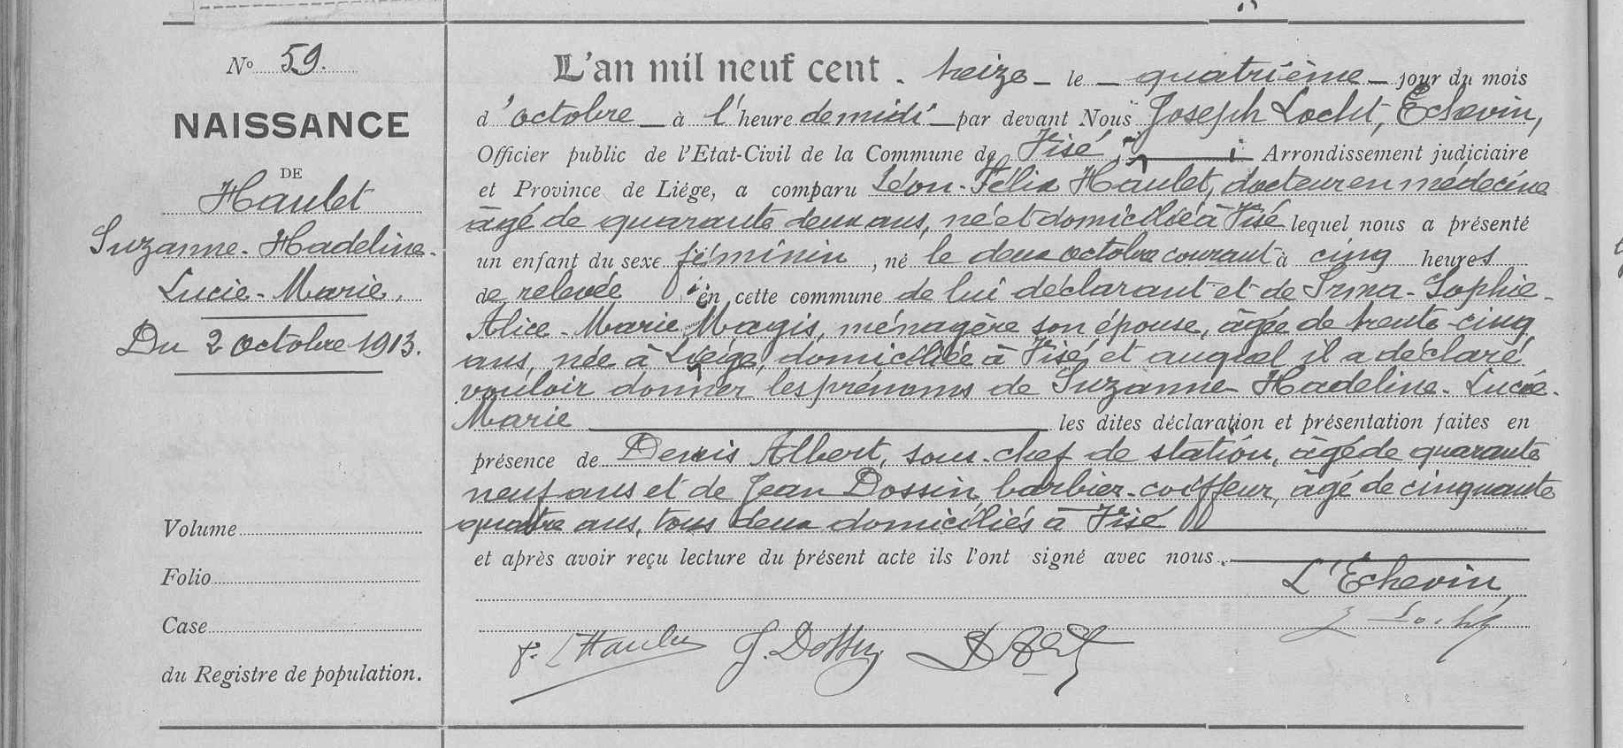 N° 59.
NAISSANCE
DE
Haulet
Suzanne-Hadeline-
Lucie-Marie.
Du 2 octobre 1913.
Volume
Folio
Case
du Registre de population.
L'an mil neuf cent treize le quatrième jour du mois
d'octobre à l'heure de midi par devant Nous Joseph Locht, Echevin,
Officier public de l'Etat-Civil de la Commune de Visé, Arrondissement judiciaire
et Province de Liége, a comparu Léon-Félix Haulet, docteur en médecine
âgé de quarante deux ans, né et domicilié à Visé lequel nous a présenté
un enfant du sexe féminin, né le deux octobre courant à cinq heures
de relevée en cette commune de lui déclarant et de Irma-Sophie-
Alice-Marie Magis, ménagère son épouse, âgée de trente-cinq
ans, née à Liège, domiciliée à Visé, et auquel il a déclaré
vouloir donner les prénoms de Suzanne Hadeline-Lucie-
Marie les dites déclaration et présentation faites en
présence de Denis Albert, sous-chef de station, âgé de quarante
neuf ans et de Jean Dossin barbier-coiffeur, âgé de cinquante
quatre ans, tous deux domiciliés à Visé
et après avoir reçu lecture du présent acte ils l'ont signé avec nous.
L'Echevin
J. Dossin